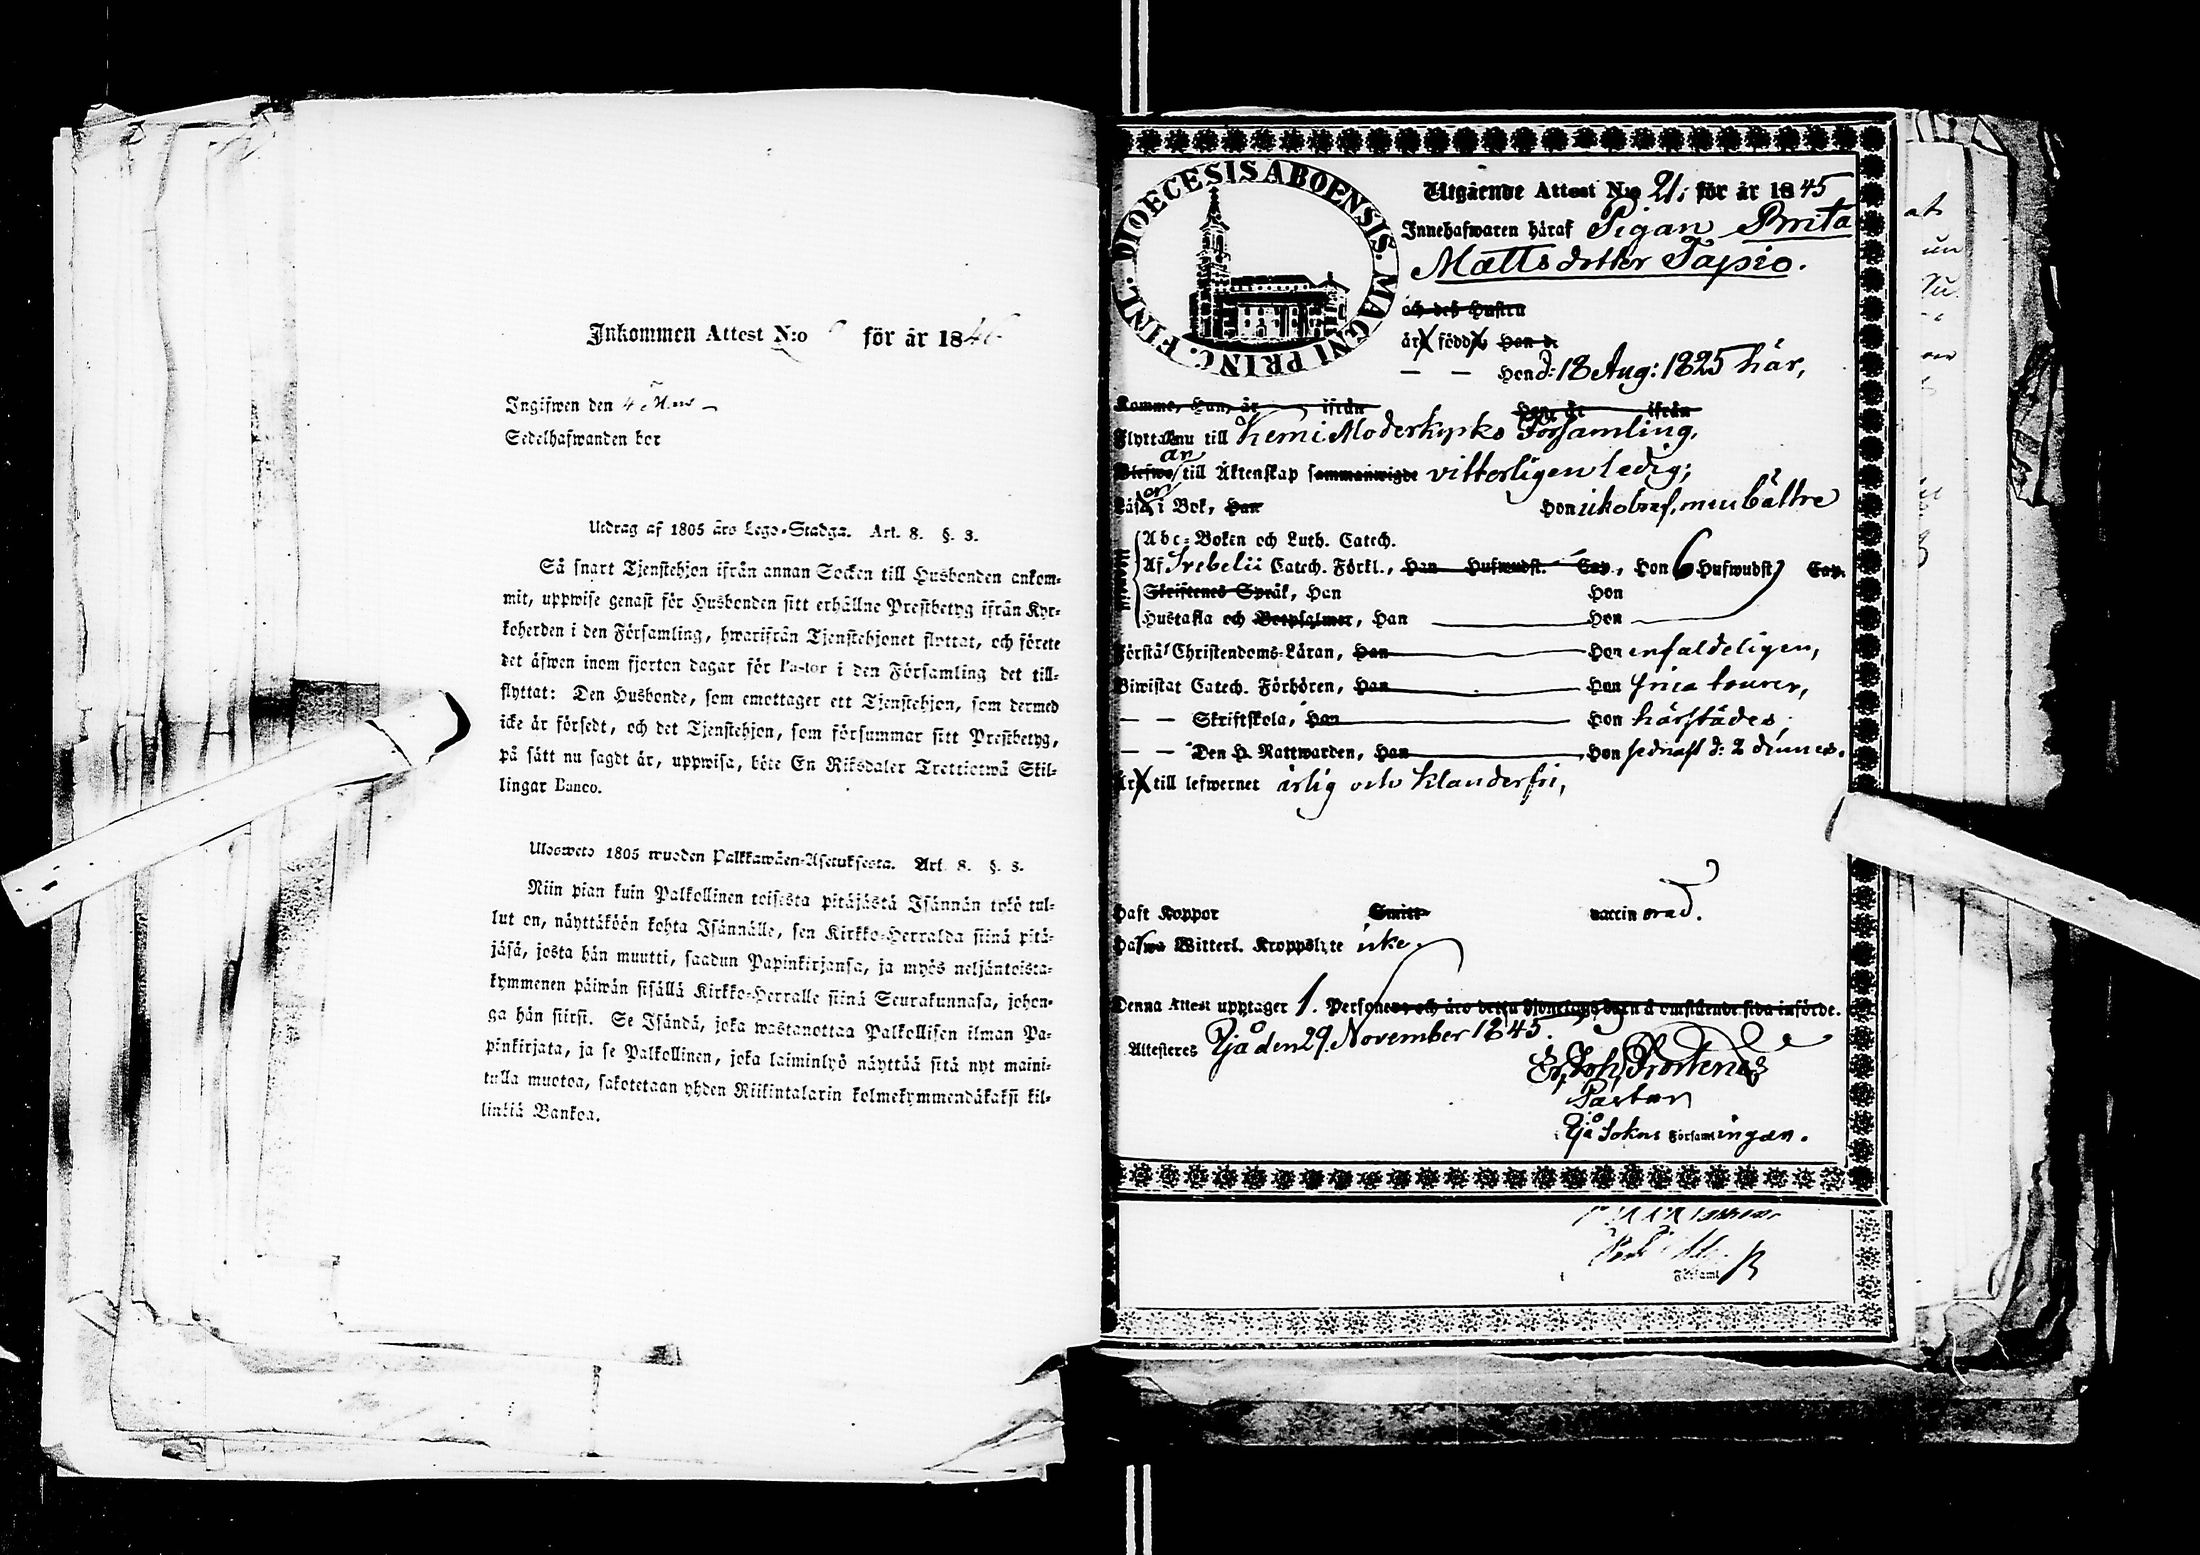 Inkommen Attest N:o för år 1846
Ingifwen den 4
Sedelhafwanden bor
Utdrag af 1805 års Lego-Stadga. Art. 8. §. 3.
Så snart Tjenstehjon ifrån annan Socken till Husbonden ankom-
mit, uppwise genast för Husbonden sitt erhållne Prestbetyg ifrån Kyr-
koherden i den Församling, hwarifrån Tjenstehjonet flyttat, och förete
det äfwen inom fjorton dagar för Pastor i den Församling det till-
flyttat: Den Husbonde, som emottager ett Tjenstehjon, som dermed
icke är försedt, och det Tjenstehjon, som försummar sitt Prestbetyg,
på sätt nu sagdt är, uppwisa, böte En Riksdaler Trettiotwå Skil-
lingar Banco.
Ulosweto 1805 wuoden Palkkawäen-Asetuksesta. Art. 8. §. 3.
Niin pian kuin Palkollinen toisesta pitäjästä Isännän tykö tul-
lut on, näyttäköön kohta Isännälle, sen Kirkko-Herralda siinä pitä-
jäsä, josta hän muutti, saadun Papinkirjansa, ja myös neljäntoista-
kymmenen päiwän sisällä Kirkko-Herralle siinä Seurakunnasa, johon-
ga hän siirsi. Se Isändä, joka wastanottaa Palkollisen ilman Pa-
pinkirjata, ja se Palkollinen, joka laiminlyö näyttää sitä nyt maini-
tulla muotoa, sakotetaan yhden Riikintalarin kolmekymmendäkaksi kil-
linkiä Bankoa.
DIOECESIS ABOENSIS. MAGNI PRINC. FINL.
Utgående Attest N:o 21. för år 1845
Innehafwaren häraf Pigan Brita
Mattsdotter Tapio.
och deß Hustru
är född Han d.
— — Hon d: 18 Aug: 1825 här,
Komme, Han, är ifrån Hon, är ifrån
Flytta nu till Kemi Moderkyrko Församling,
är
Blefwo till Äktenskap sammanwigde vitterligen ledig;
Läsa i Bok, Han Hon
Abc-Boken och Luth. Catech.
Af Svebelii Catech. Förkl., Han Hufwudst. Cap., Hon 6 Hufwudst Cap.
Skriftenes Språk, Han Hon
Hustafla och Botpsalmer, Han Hon
Förstå Christendoms-Läran, Han Hon enfaldeligen,
Biwistat Catech. Förhören, Han Hon
— — Skriftskola, Han Hon härstädes
— — Den H. Nattwarden, Han Hon sednast d: 2
Är till lefwernet ärlig och klanderfri,
Haft Koppor Smitt- vaccinerad.
Hafwa Witterl. Kroppslyte icke.
Denna Attest upptager 1. Personer och äro detta Hjonelags barn å omstående sida införde.
Attesteres Ijå den 29 November 1845.
Pastor
i Ijå Sokns Församlingen.
i Församl